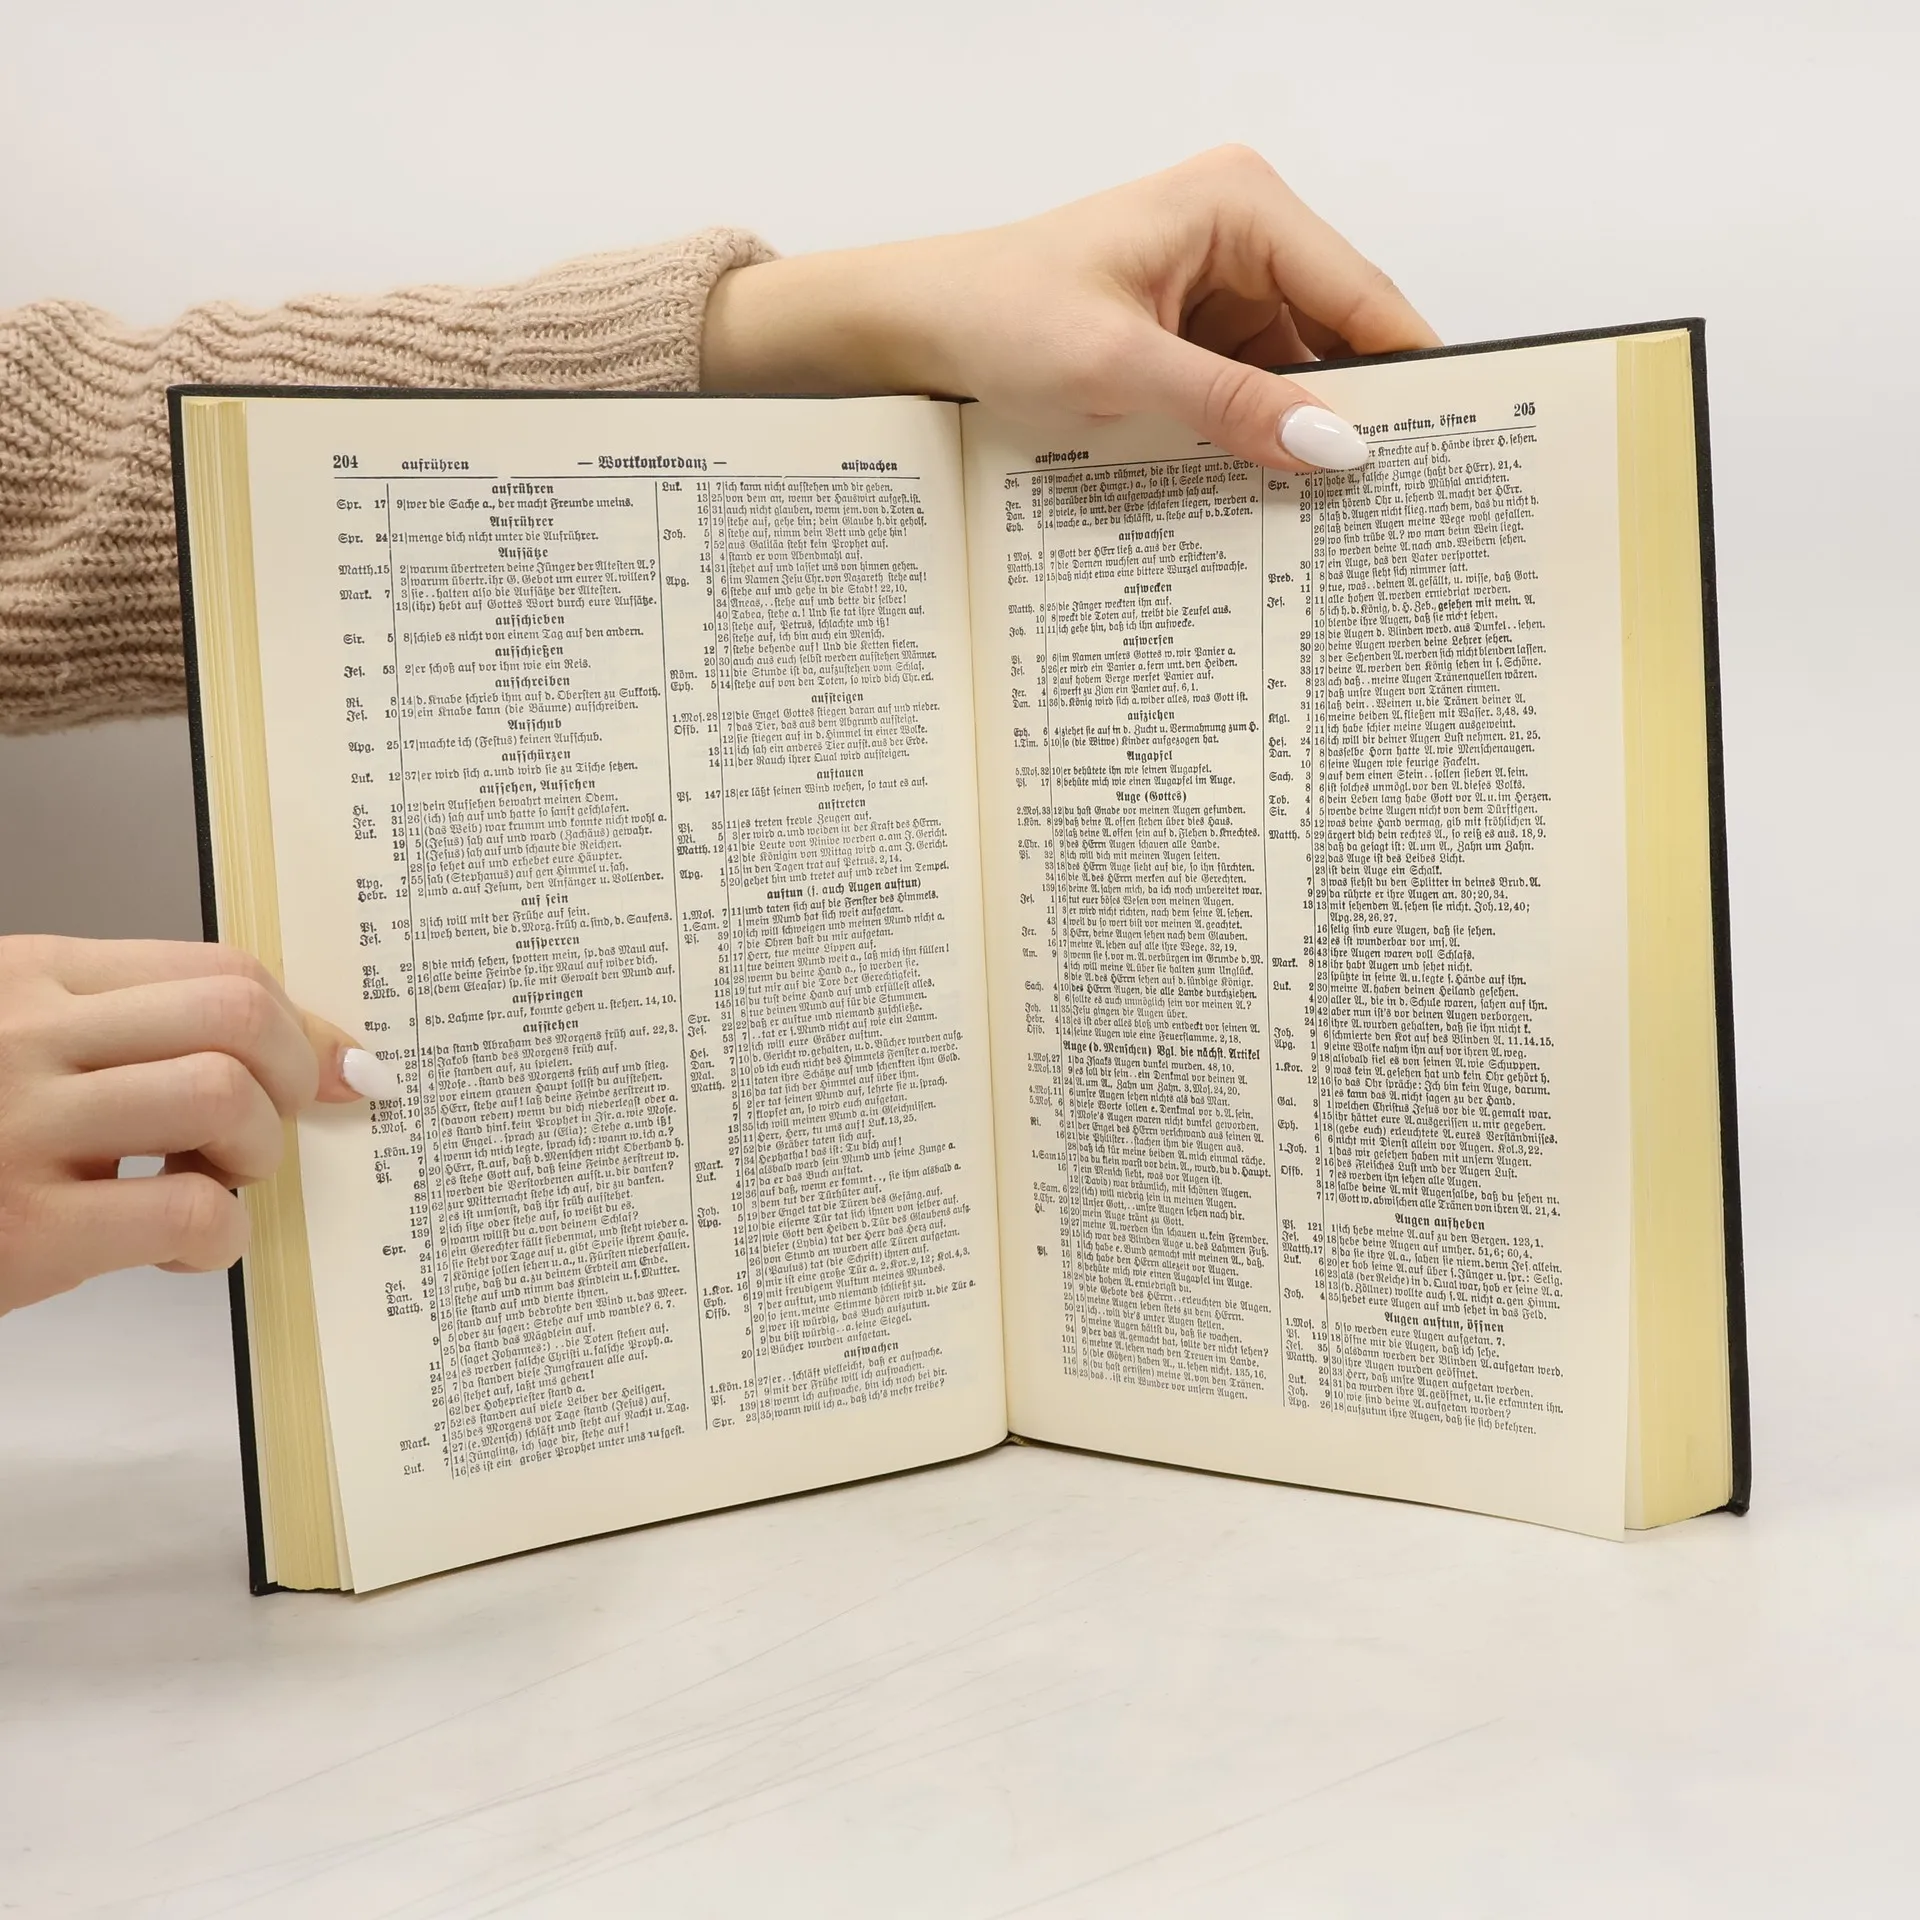 204 aufrühren — Wortkonkordanz — aufwachen
aufrühren
Spr. 17 9 wer die Sache a., der macht Freunde uneins.
Aufrührer
Spr. 24 21 menge dich nicht unter die Aufrührer.
Aufsätze
Matth. 15 2 warum übertreten deine Jünger der Ältesten A.?
3 warum übertr. ihr G. Gebot um eurer A. willen?
Mark. 7 3 sie . . halten also die Aufsätze der Ältesten.
13 (ihr) hebt auf Gottes Wort durch eure Aufsätze.
aufschieben
Sir. 5 8 schieb es nicht von einem Tag auf den andern.
aufschießen
Jes. 53 2 er schoß auf vor ihm wie ein Reis.
aufschreiben
Ri. 8 14 d. Knabe schrieb ihm auf d. Obersten zu Sukkoth.
Jes. 10 19 ein Knabe kann (die Bäume) aufschreiben.
Aufschub
Apg. 25 17 machte ich (Festus) keinen Aufschub.
aufschürzen
Luk. 12 37 er wird sich a. und wird sie zu Tische setzen.
aufsehen, Aufsehen
Hi. 10 12 dein Aufsehen bewahrt meinen Odem.
Jer. 31 26 (ich) sah auf und hatte so sanft geschlafen.
Luk. 13 11 (das Weib) war krumm und konnte nicht wohl a.
19 5 (Jesus) sah auf und ward (Zachäus) gewahr.
21 1 (Jesus) sah auf und schaute die Reichen.
28 so sehet auf und erhebet eure Häupter.
Apg. 7 55 sah (Stephanus) auf gen Himmel u. sah.
Hebr. 12 2 und a. auf Jesum, den Anfänger u. Vollender.
auf sein
Ps. 108 3 ich will mit der Frühe auf sein.
Jes. 5 11 weh denen, die d. Morg. früh a. sind, d. Saufens.
aufsperren
Ps. 22 8 die mich sehen, spotten mein, sp. das Maul auf.
Klgl. 2 16 alle deine Feinde sp. ihr Maul auf wider dich.
2. Mkb. 6 18 (dem Eleasar) sp. sie mit Gewalt den Mund auf.
aufspringen
Apg. 3 8 d. Lahme spr. auf, konnte gehen u. stehen. 14, 10.
aufstehen
Mos. 21 14 da stand Abraham des Morgens früh auf. 22, 3.
28 18 Jakob stand des Morgens früh auf.
32 6 sie standen auf, zu spielen.
34 4 Mose . . stand des Morgens früh auf und stieg.
3. Mos. 19 32 vor einem grauen Haupt sollst du aufstehen.
4. Mos. 10 35 HErr, stehe auf! laß deine Feinde zerstreut w.
5. Mos. 6 7 (davon reden) wenn du dich niederlegst oder a.
34 10 es stand hinf. kein Prophet in Isr. a. wie Mose.
1. Kön. 19 5 ein Engel . . sprach zu (Elia): Stehe a. und iß!
Hi. 7 4 wenn ich mich legte, sprach ich: wann w. ich a.?
Ps. 9 20 HErr, st. auf, daß d. Menschen nicht Oberhand h.
68 2 es stehe Gott auf, daß seine Feinde zerstreut w.
88 11 werden die Verstorbenen aufst. u. dir danken?
119 62 zur Mitternacht stehe ich auf, dir zu danken.
127 2 es ist umsonst, daß ihr früh aufstehet.
139 2 ich sitze oder stehe auf, so weißt du es.
Spr. 6 9 wann willst du a. von deinem Schlaf?
24 16 ein Gerechter fällt siebenmal, und steht wieder a.
31 15 sie steht vor Tage auf u. gibt Speise ihrem Hause.
Jes. 49 7 Könige sollen sehen u. a., u. Fürsten niederfallen.
Dan. 12 13 ruhe, daß du a. zu deinem Erbteil am Ende.
Matth. 2 13 stehe auf und nimm das Kindlein u. s. Mutter.
8 15 sie stand auf und diente ihnen.
26 stand auf und bedrohte den Wind u. das Meer.
9 5 oder zu sagen: Stehe auf und wandle? 6. 7.
25 da stand das Mägdlein auf.
11 5 (saget Johannes:) . . die Toten stehen auf.
24 24 es werden falsche Christi u. falsche Proph. a.
25 7 da standen diese Jungfrauen alle auf.
26 46 stehet auf, laßt uns gehen!
62 der Hohepriester stand a.
27 52 es standen auf viele Leiber der Heiligen.
Mark. 1 35 des Morgens vor Tage stand (Jesus) auf.
4 27 (e. Mensch) schläft und steht auf Nacht u. Tag.
Luk. 7 14 Jüngling, ich sage dir, stehe auf!
16 es ist ein großer Prophet unter uns aufgest.
Luk. 11 7 ich kann nicht aufstehen und dir geben.
13 25 von dem an, wenn der Hauswirt aufgest. ist.
16 31 auch nicht glauben, wenn jem. von d. Toten a.
17 19 stehe auf, gehe hin; dein Glaube h. dir geholf.
Joh. 5 8 stehe auf, nimm dein Bett und gehe hin!
7 52 aus Galiläa steht kein Prophet auf.
13 4 stand er vom Abendmahl auf.
14 31 stehet auf und lasset uns von hinnen gehen.
Apg. 3 6 im Namen Jesu Chr. von Nazareth stehe auf!
9 6 stehe auf und gehe in die Stadt! 22, 10.
34 Äneas, . . stehe auf und bette dir selber!
40 Tabea, stehe a.! Und sie tat ihre Augen auf.
10 13 stehe auf, Petrus, schlachte und iß!
26 stehe auf, ich bin auch ein Mensch.
12 7 stehe behende auf! Und die Ketten fielen.
20 30 auch aus euch selbst werden aufstehen Männer.
Röm. 13 11 die Stunde ist da, aufzustehen vom Schlaf.
Eph. 5 14 stehe auf von den Toten, so wird dich Chr. erl.
aufsteigen
1. Mos. 28 12 die Engel Gottes stiegen daran auf und nieder.
Offb. 11 7 das Tier, das aus dem Abgrund aufsteigt.
12 sie stiegen auf in d. Himmel in einer Wolke.
13 11 ich sah ein anderes Tier aufst. aus der Erde.
14 11 der Rauch ihrer Qual wird aufsteigen.
auftauen
Ps. 147 18 er läßt seinen Wind wehen, so taut es auf.
auftreten
Ps. 35 11 es treten frevle Zeugen auf.
Mi. 5 3 er wird a. und weiden in der Kraft des HErrn.
Matth. 12 41 die Leute von Ninive werden a. am J. Gericht.
42 die Königin von Mittag wird a. am J. Gericht.
Apg. 1 15 in den Tagen trat auf Petrus. 2, 14.
5 20 gehet hin und tretet auf und redet im Tempel.
auftun (s. auch Augen auftun)
1. Mos. 7 11 und taten sich auf die Fenster des Himmels.
1. Sam. 2 1 mein Mund hat sich weit aufgetan.
Ps. 39 10 ich will schweigen und meinen Mund nicht a.
40 7 die Ohren hast du mir aufgetan.
51 17 Herr, tue meine Lippen auf.
81 11 tue deinen Mund weit a., laß mich ihn füllen!
104 28 wenn du deine Hand a., so werden sie.
118 19 tut mir auf die Tore der Gerechtigkeit.
145 16 du tust deine Hand auf und erfüllest alles.
Spr. 31 8 tue deinen Mund auf für die Stummen.
Jes. 22 22 daß er auftue und niemand zuschließe.
53 7 . . tat er s. Mund nicht auf wie ein Lamm.
Hes. 37 12 ich will eure Gräber auftun.
Dan. 7 10 d. Gericht w. gehalten, u. d. Bücher wurden aufg.
Mal. 3 10 ob ich euch nicht des Himmels Fenster a. werde.
Matth. 2 11 taten ihre Schätze auf und schenkten ihm Gold.
3 16 da tat sich der Himmel auf über ihm.
5 2 er tat seinen Mund auf, lehrte sie u. sprach.
7 7 klopfet an, so wird euch aufgetan.
13 35 ich will meinen Mund a. in Gleichnissen.
25 11 Herr, Herr, tu uns auf! Luk. 13, 25.
27 52 die Gräber taten sich auf.
Mark. 7 34 Hephatha! das ist: Tu dich auf!
Luk. 1 64 alsbald ward sein Mund und seine Zunge a.
4 17 da er das Buch auftat.
12 36 auf daß, wenn er kommt . ., sie ihm alsbald a.
Joh. 10 3 dem tut der Türhüter auf.
Apg. 5 19 der Engel tat die Türen des Gefäng. auf.
12 10 die eiserne Tür tat sich ihnen von selber auf.
14 27 wie Gott den Heiden d. Tür des Glaubens aufg.
16 14 dieser (Lydia) tat der Herr das Herz auf.
26 von Stund an wurden alle Türen aufgetan.
17 3 (Paulus) tat (die Schrift) ihnen auf.
1. Kor. 16 9 mir ist eine große Tür a. 2. Kor. 2, 12; Kol. 4, 3.
Eph. 6 19 mit freudigem Auftun meines Mundes.
Offb. 3 7 der auftut, und niemand schließt zu.
20 so jem. meine Stimme hören wird u. die Tür a.
5 2 wer ist würdig, das Buch aufzutun.
9 du bist würdig . . a. seine Siegel.
20 12 Bücher wurden aufgetan.
aufwachen
1. Kön. 18 27 er . . schläft vielleicht, daß er aufwache.
Ps. 57 9 mit der Frühe will ich aufwachen.
139 18 wenn ich aufwache, bin ich noch bei dir.
Spr. 23 35 wann will ich a., daß ich's mehr treibe?
aufwachen — Augen auftun, öffnen 205
Jes. 26 19 wachet a. und rühmet, die ihr liegt unt. d. Erde.
29 8 wenn (der Hungr.) a., so ist s. Seele noch leer.
Jer. 31 26 darüber bin ich aufgewacht und sah auf.
Dan. 12 2 viele, so unt. der Erde schlafen liegen, werden a.
Eph. 5 14 wache a., der du schläfst, u. stehe auf v. d. Toten.
aufwachsen
1 Mos. 2 9 Gott der HErr ließ a. aus der Erde.
Matth. 13 7 die Dornen wuchsen auf und erstickten's.
Hebr. 12 15 daß nicht etwa eine bittere Wurzel aufwachse.
aufwecken
Matth. 8 25 die Jünger weckten ihn auf.
10 8 weckt die Toten auf, treibt die Teufel aus.
Joh. 11 11 ich gehe hin, daß ich ihn aufwecke.
aufwerfen
Ps. 20 6 im Namen unsers Gottes w. wir Panier a.
Jes. 5 26 er wird ein Panier a. fern unt. den Heiden.
13 2 auf hohem Berge werfet Panier auf.
Jer. 4 6 werft zu Zion ein Panier auf. 6, 1.
Dan. 11 36 d. König wird sich a. wider alles, was Gott ist.
aufziehen
Eph. 6 4 ziehet sie auf in d. Zucht u. Vermahnung zum H.
1. Tim. 5 10 so (die Witwe) Kinder aufgezogen hat.
Augapfel
5. Mos. 32 10 er behütete ihn wie seinen Augapfel.
Ps. 17 8 behüte mich wie einen Augapfel im Auge.
Auge (Gottes)
2. Mos. 33 12 du hast Gnade vor meinen Augen gefunden.
1. Kön. 8 29 daß deine A. offen stehen über dies Haus.
52 laß deine A. offen sein auf d. Flehen d. Knechtes.
2. Chr. 16 9 des HErrn Augen schauen alle Lande.
Ps. 32 8 ich will dich mit meinen Augen leiten.
33 18 des HErrn Auge sieht auf die, so ihn fürchten.
34 16 die A. des HErrn merken auf die Gerechten.
139 16 deine A. sahen mich, da ich noch unbereitet war.
Jes. 1 16 tut euer böses Wesen von meinen Augen.
11 3 er wird nicht richten, nach dem seine A. sehen.
43 4 weil du so wert bist vor meinen A. geachtet.
Jer. 5 3 HErr, deine Augen sehen nach dem Glauben.
16 17 meine A. sehen auf alle ihre Wege. 32, 19.
Am. 9 3 wenn sie s. vor m. A. verbürgen im Grunde d. M.
4 ich will meine A. über sie halten zum Unglück.
8 die A. des HErrn sehen auf d. sündige Königr.
Sach. 4 10 des HErrn Augen, die alle Lande durchziehen.
8 6 sollte es auch unmöglich sein vor meinen A.?
Joh. 11 35 Jesu gingen die Augen über.
Hebr. 4 13 es ist aber alles bloß und entdeckt vor seinen A.
Offb. 1 14 seine Augen wie eine Feuerflamme. 2, 18.
Auge (d. Menschen) Vgl. die nächst. Artikel
1. Mos. 27 1 da Isaaks Augen dunkel wurden. 48, 10.
2. Mos. 13 9 es soll dir sein . . ein Denkmal vor deinen A.
21 24 A. um A., Zahn um Zahn. 3. Mos. 24, 20.
4. Mos. 11 6 unsre Augen sehen nichts als das Man.
5. Mos. 6 8 diese Worte sollen e. Denkmal vor d. A. sein.
34 7 Mose's Augen waren nicht dunkel geworden.
Ri. 6 21 der Engel des HErrn verschwand aus seinen A.
16 21 die Philister . . stachen ihm die Augen aus.
28 daß ich für meine beiden A. mich einmal räche.
1. Sam 15 17 da du klein warst vor dein. A., wurd. du d. Haupt.
16 7 ein Mensch sieht, was vor Augen ist.
12 (David) war bräunlich, mit schönen Augen.
2. Sam. 6 22 (ich) will niedrig sein in meinen Augen.
2. Chr. 20 12 Unser Gott, . . unsre Augen sehen nach dir.
Hi. 16 20 mein Auge tränt zu Gott.
19 27 meine A. werden ihn schauen u. kein Fremder.
29 15 ich war des Blinden Auge u. des Lahmen Fuß.
31 1 ich habe e. Bund gemacht mit meinen A., daß.
Ps. 16 8 ich habe den HErrn allezeit vor Augen.
17 8 behüte mich wie einen Augapfel im Auge.
18 28 die hohen A. erniedrigst du.
19 9 die Gebote des HErrn . . erleuchten die Augen.
25 15 meine Augen sehen stets zu dem HErrn.
50 21 ich . . will dir's unter Augen stellen.
77 5 meine Augen hältst du, daß sie wachen.
94 9 der das A. gemacht hat, sollte der nicht sehen?
101 6 meine A. sehen nach den Treuen im Lande.
115 5 (die Götzen) haben A., u. sehen nicht. 135, 16.
116 8 (du hast gerissen) meine A. von den Tränen.
118 23 das . . ist ein Wunder vor unsern Augen.
er Knechte auf d. Hände ihrer H. sehen.
Augen warten auf dich.
Spr. 6 17 hohe A., falsche Zunge (haßt der HErr). 21, 4.
10 10 wer mit A. winkt, wird Mühsal anrichten.
20 12 ein hörend Ohr u. sehend A. macht der HErr.
23 5 laß d. Augen nicht flieg. nach dem, das du nicht h.
26 laß deinen Augen meine Wege wohl gefallen.
29 wo sind trübe A.? wo man beim Wein liegt.
33 so werden deine A. nach and. Weibern sehen.
30 17 ein Auge, das den Vater verspottet.
Pred. 1 8 das Auge sieht sich nimmer satt.
11 9 tue, was . . deinen A. gefällt, u. wisse, daß Gott.
Jes. 2 11 alle hohen A. werden erniedrigt werden.
6 5 ich h. d. König, d. H. Zeb., gesehen mit mein. A.
10 blende ihre Augen, daß sie nicht sehen.
29 18 die Augen d. Blinden werd. aus Dunkel . . sehen.
30 20 deine Augen werden deine Lehrer sehen.
32 3 der Sehenden A. werden sich nicht blenden lassen.
33 17 deine A. werden den König sehen in s. Schöne.
Jer. 8 23 ach daß . . meine Augen Tränenquellen wären.
9 17 daß unsre Augen von Tränen rinnen.
31 16 laß dein . . Weinen u. die Tränen deiner A.
Klgl. 1 16 meine beiden A. fließen mit Wasser. 3, 48. 49.
2 11 ich habe schier meine Augen ausgeweint.
Hes. 24 16 ich will dir deiner Augen Lust nehmen. 21. 25.
Dan. 7 8 dasselbe Horn hatte A. wie Menschenaugen.
10 6 seine Augen wie feurige Fackeln.
Sach. 3 9 auf dem einen Stein . . sollen sieben A. sein.
8 6 ist solches unmögl. vor den A. dieses Volks.
Tob. 4 6 dein Leben lang habe Gott vor A. u. im Herzen.
Sir. 4 5 wende deine Augen nicht von dem Dürftigen.
35 12 was deine Hand vermag, gib mit fröhlichen A.
Matth. 5 29 ärgert dich dein rechtes A., so reiß es aus. 18, 9.
38 daß da gesagt ist: A. um A., Zahn um Zahn.
6 22 das Auge ist des Leibes Licht.
23 ist dein Auge ein Schalk.
7 3 was siehst du den Splitter in deines Brud. A.
9 29 da rührte er ihre Augen an. 30; 20, 34.
13 13 mit sehenden A. sehen sie nicht. Joh. 12, 40;
Apg. 28, 26. 27.
16 selig sind eure Augen, daß sie sehen.
21 42 es ist wunderbar vor uns. A.
26 43 ihre Augen waren voll Schlafs.
Mark. 8 18 ihr habt Augen und sehet nicht.
23 spützte in seine A. u. legte s. Hände auf ihn.
Luk. 2 30 meine A. haben deinen Heiland gesehen.
4 20 aller A., die in d. Schule waren, sahen auf ihn.
19 42 aber nun ist's vor deinen Augen verborgen.
24 16 ihre A. wurden gehalten, daß sie ihn nicht k.
Joh. 9 6 schmierte den Kot auf des Blinden A. 11. 14. 15.
Apg. 1 9 eine Wolke nahm ihn auf vor ihren A. weg.
9 18 alsobald fiel es von seinen A. wie Schuppen.
1. Kor. 2 9 was kein A. gesehen hat und kein Ohr gehört h.
12 16 so das Ohr spräche: Ich bin kein Auge, darum.
21 es kann das A. nicht sagen zu der Hand.
Gal. 3 1 welchen Christus Jesus vor die A. gemalt war.
4 15 ihr hättet eure A. ausgerissen u. mir gegeben.
Eph. 1 18 (gebe euch) erleuchtete A. eures Verständnisses.
6 6 nicht mit Dienst allein vor Augen. Kol. 3, 22.
1. Joh. 1 1 das wir gesehen haben mit unsern Augen.
2 16 des Fleisches Lust und der Augen Lust.
Offb. 1 7 es werden ihn sehen alle Augen.
3 18 salbe deine A. mit Augensalbe, daß du sehen m.
7 17 Gott w. abwischen alle Tränen von ihren A. 21, 4.
Augen aufheben
Ps. 121 1 ich hebe meine A. auf zu den Bergen. 123, 1.
Jes. 49 18 hebe deine Augen auf umher. 51, 6; 60, 4.
Matth. 17 8 da sie ihre A. a., sahen sie niem. denn Jes. allein.
Luk. 6 20 er hob seine A. auf über s. Jünger u. spr.: Selig.
16 23 als (der Reiche) in d. Qual war, hob er seine A. a.
18 13 (d. Zöllner) wollte auch s. A. nicht a. gen Himm.
Joh. 4 35 hebet eure Augen auf und sehet in das Feld.
Augen auftun, öffnen
1. Mos. 3 5 so werden eure Augen aufgetan. 7.
Ps. 119 18 öffne mir die Augen, daß ich sehe.
Jes. 35 5 alsdann werden der Blinden A. aufgetan werd.
Matth. 9 30 ihre Augen wurden geöffnet.
20 33 Herr, daß unsre Augen aufgetan werden.
Luk. 24 31 da wurden ihre A. geöffnet, u. sie erkannten ihn.
Joh. 9 10 wie sind deine A. aufgetan worden?
Apg. 26 18 aufzutun ihre Augen, daß sie sich bekehren.